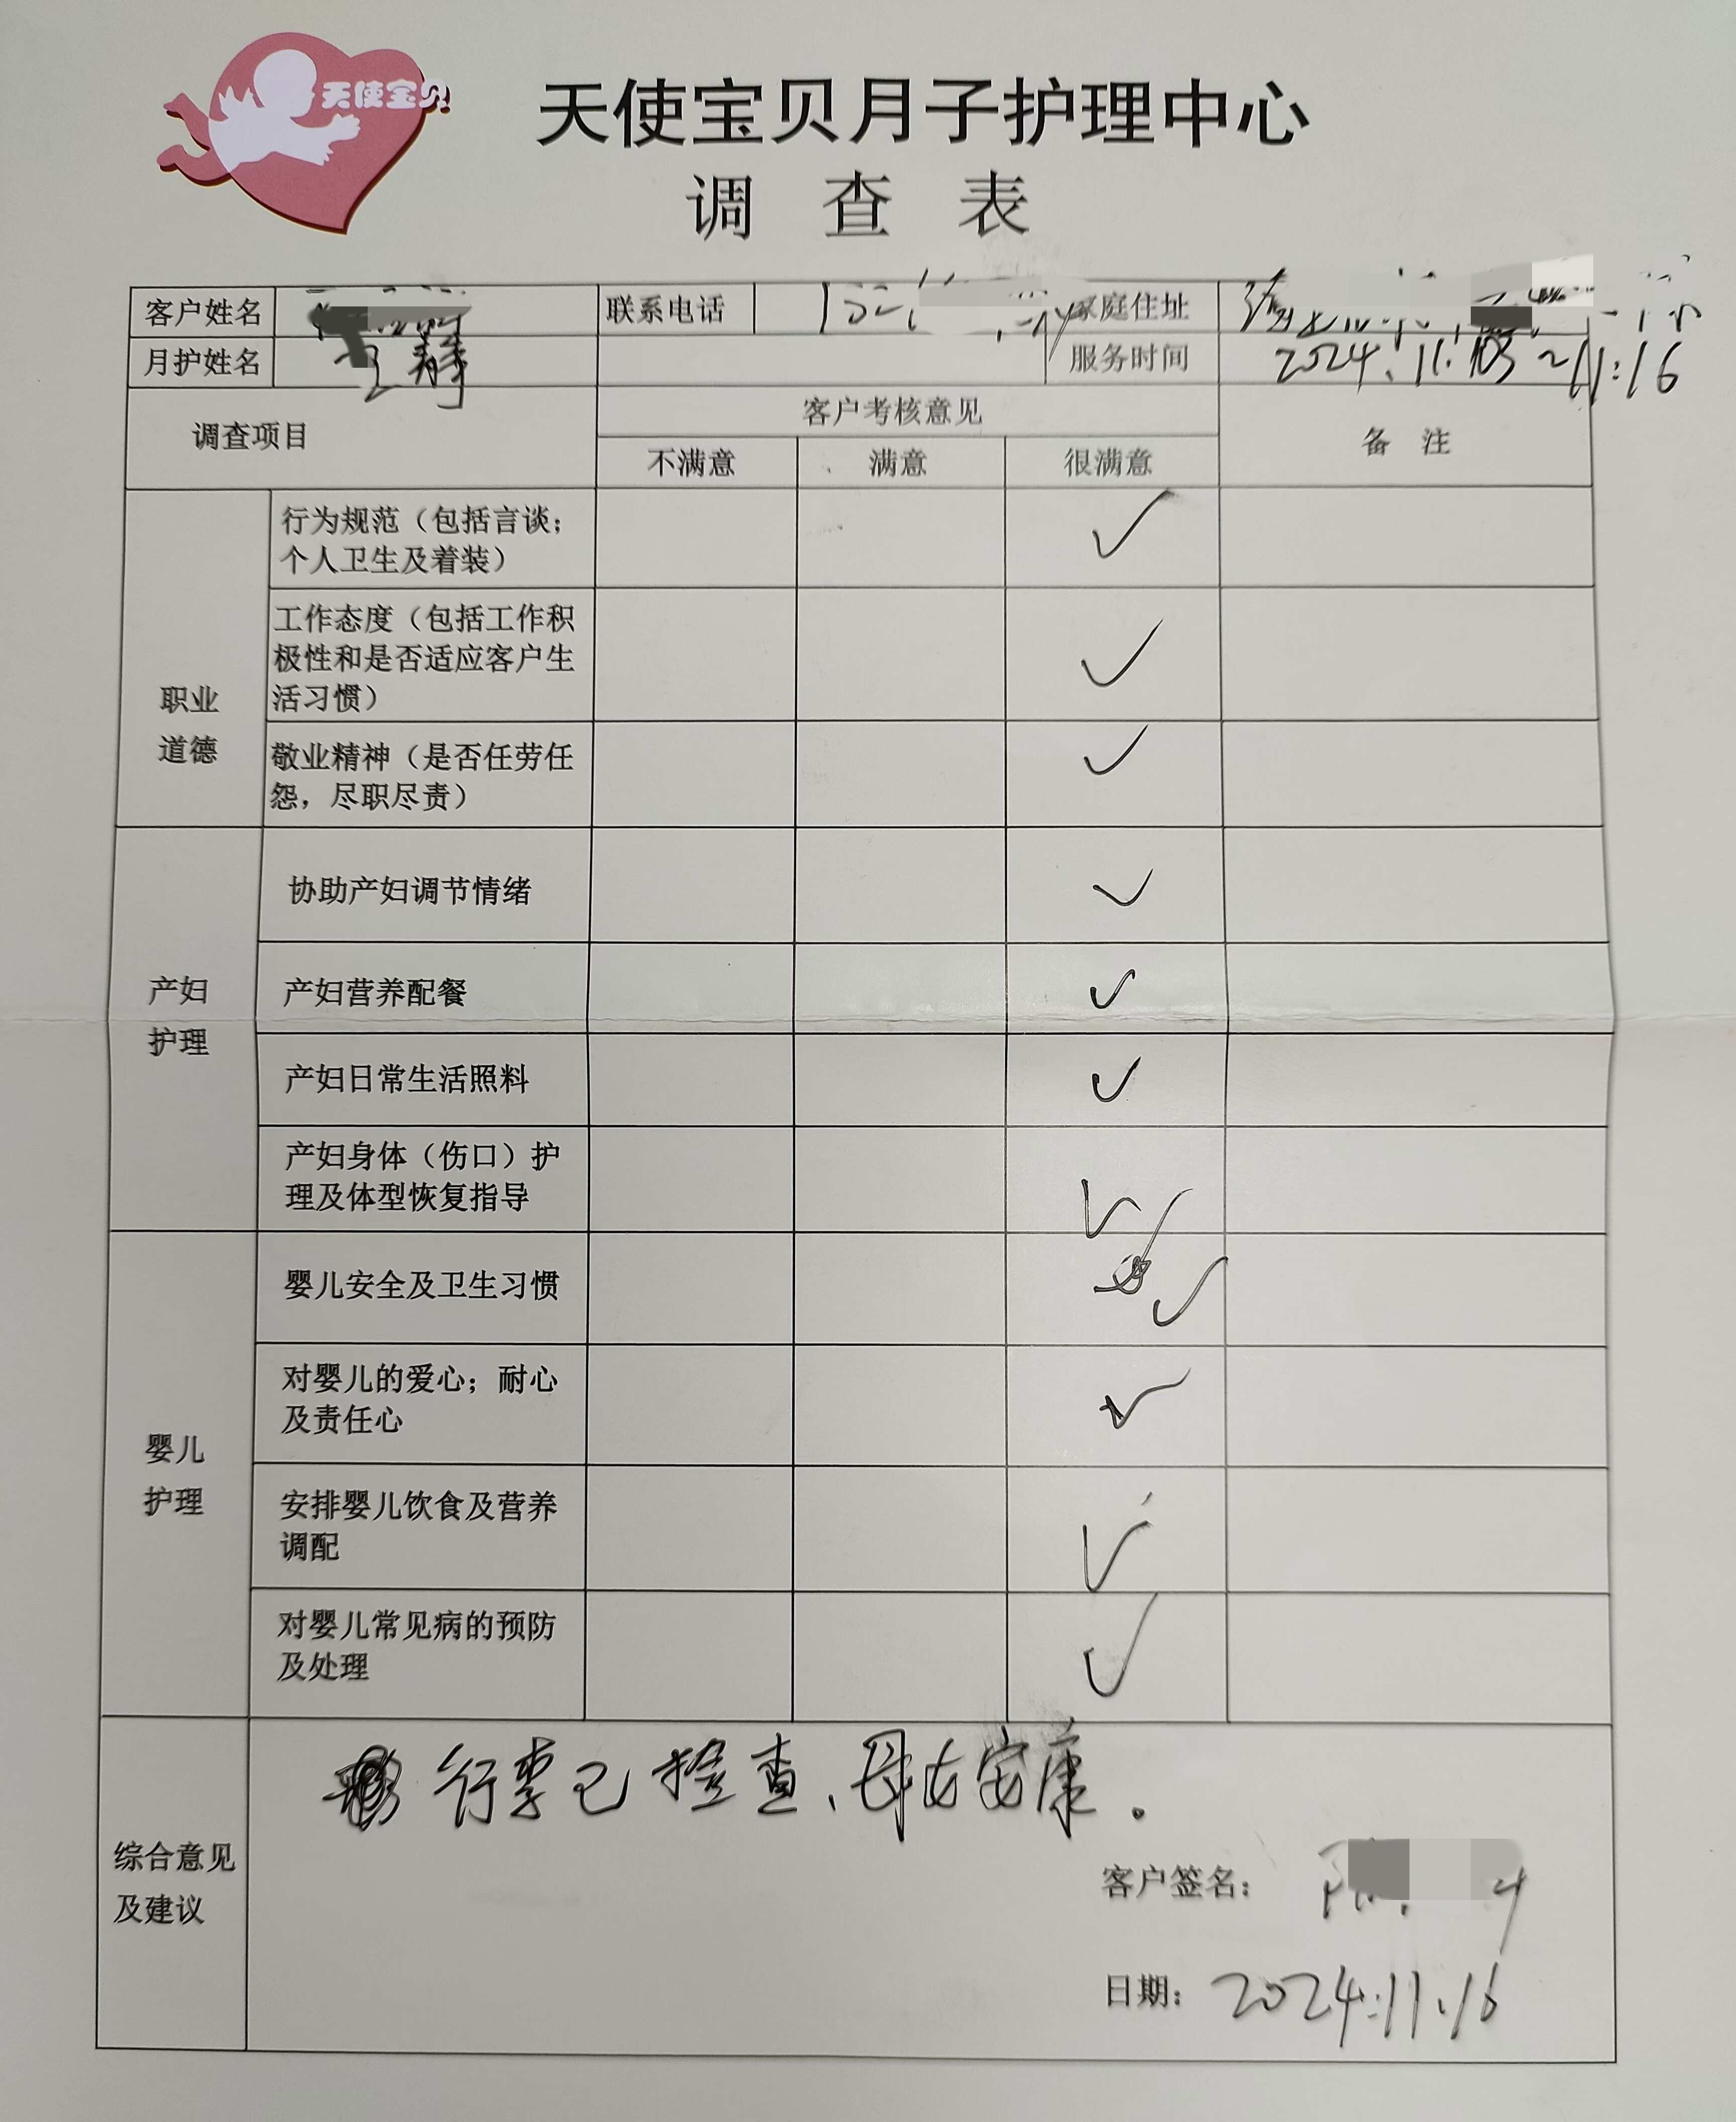 天使宝贝
天使宝贝月子护理中心
调查表
客户姓名 联系电话 家庭住址
月护姓名 王静 服务时间 2024.11.03~11.16
调查项目 客户考核意见 备注
不满意 满意 很满意
职业
道德
行为规范（包括言谈；
个人卫生及着装） ✓
工作态度（包括工作积
极性和是否适应客户生
活习惯） ✓
敬业精神（是否任劳任
怨，尽职尽责） ✓
产妇
护理
协助产妇调节情绪 ✓
产妇营养配餐 ✓
产妇日常生活照料 ✓
产妇身体（伤口）护
理及体型恢复指导 ✓
婴儿
护理
婴儿安全及卫生习惯 ✓
对婴儿的爱心；耐心
及责任心 ✓
安排婴儿饮食及营养
调配 ✓
对婴儿常见病的预防
及处理 ✓
综合意见
及建议
行李已检查、母女安康。
客户签名：
日期：2024.11.16